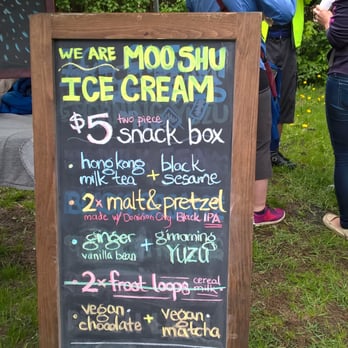 WE ARE MOO SHU
ICE CREAM
$5 two piece
snack box
• hong kong milk tea + black sesame
• 2x malt & pretzel
made w/ Dominion City Black IPA
• ginger vanilla bean + g'morning YUZU
• 2x froot loops cereal milk
• vegan chocolate + vegan matcha